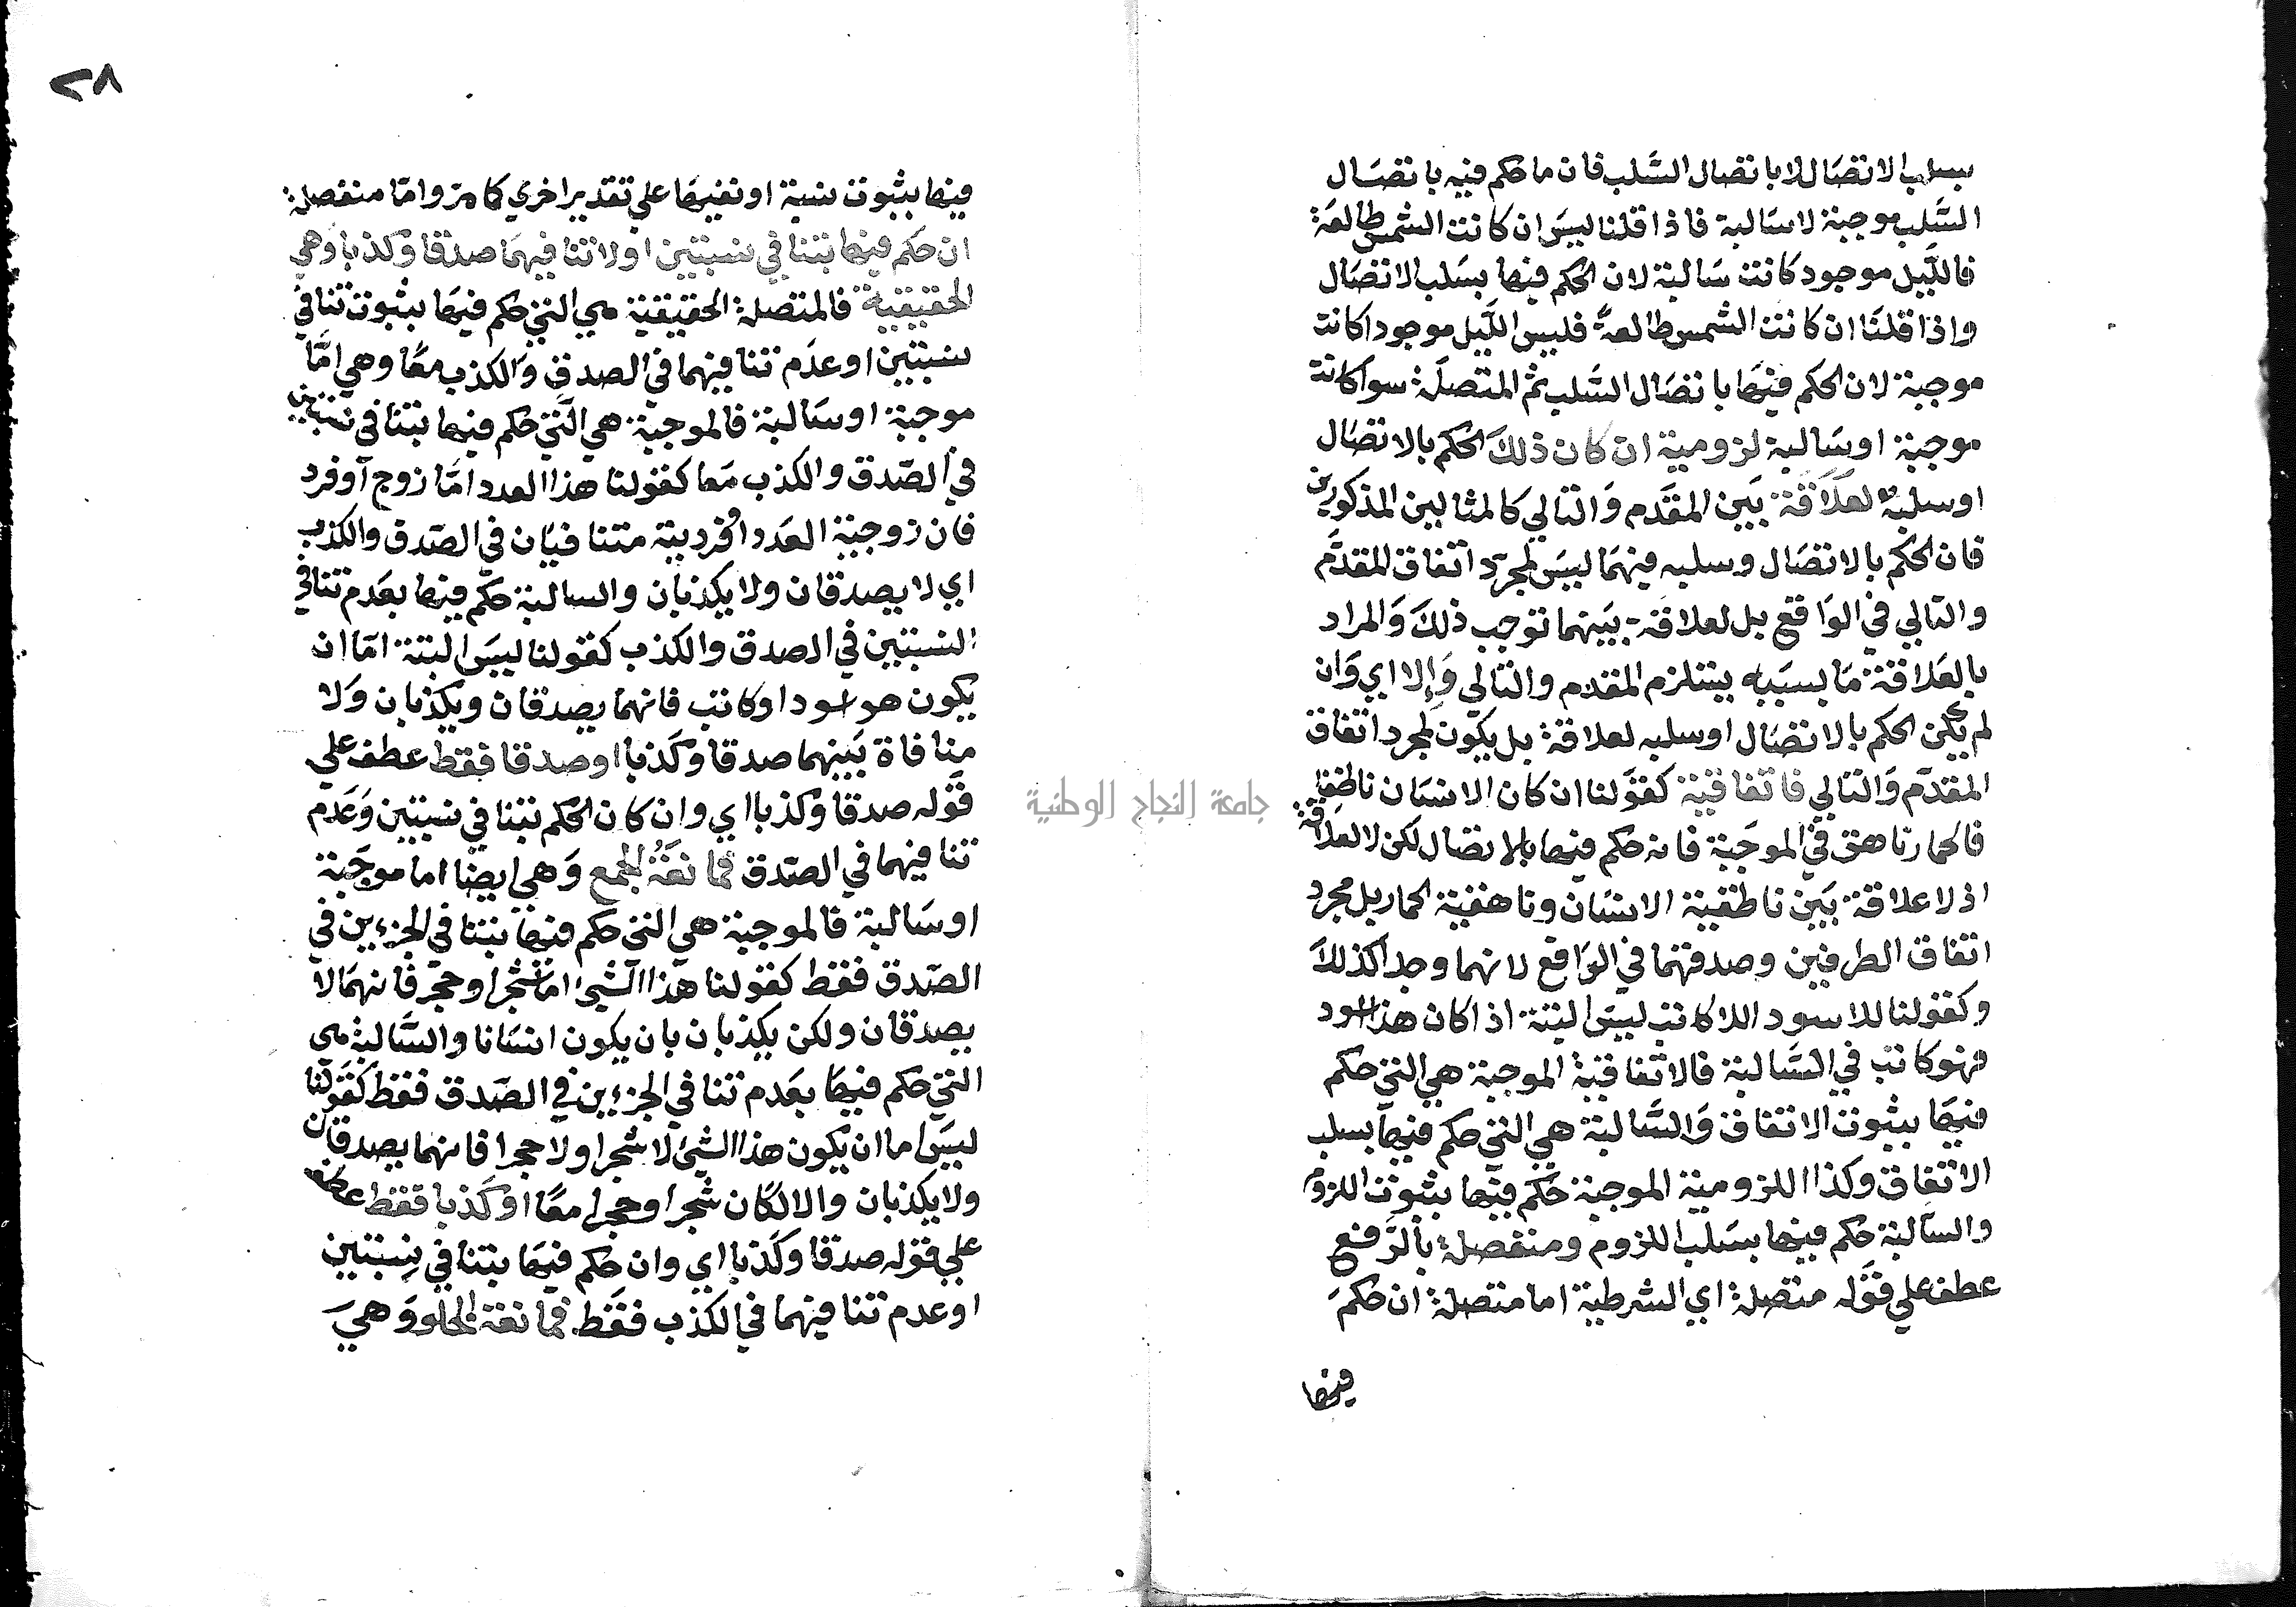 بسلب الاتصال لا باتصال السلب فان ما حكم فيه باتصال
السلب موجبة لا سالبة فاذا قلنا ليس ان كانت الشمس طالعة
فالليل موجود كانت سالبة لان الحكم فيها بسلب الاتصال
واذا قلنا ان كانت الشمس طالعة فليس الليل موجودا كانت
موجبة لان الحكم فيها باتصال السلب ثم المتصلة سوا كانت
موجبة او سالبة لزومية ان كان ذلك الحكم بالاتصال
او سلبه لعلاقة بين المقدم والتالي كالمثالين المذكورين
فان الحكم بالاتصال وسلبه فيهما ليس لمجرد اتفاق المقدم
والتالي في الواقع بل لعلاقة بينهما توجب ذلك والمراد
بالعلاقة ما بسببه يستلزم المقدم والتالي والا اي وان
لم يكن الحكم بالاتصال او سلبه لعلاقة بل يكون لمجرد اتفاق
المقدم والتالي فاتفاقية كقولنا ان كان الانسان ناطقا
فالحمار ناهق في الموجبة فانه حكم فيها بالاتصال لكن لا لعلاقة
اذ لا علاقة بين ناطقية الانسان وناهقية الحمار بل مجرد
اتفاق الطرفين وصدقهما في الواقع لانهما وجدا كذلك
وكقولنا للاسود اللاكاتب ليس البتة اذا كان هذا اسود
فهو كاتب في السالبة فالاتفاقية الموجبة هي التي حكم
فيها بثبوت الاتفاق والسالبة هي التي حكم فيها بسلب
الاتفاق وكذا اللزومية الموجبة حكم فيها بثبوت اللزوم
والسالبة حكم فيها بسلب اللزوم ومنفصلة بالرفع
عطف على قوله متصلة اي الشرطية اما متصلة ان حكم
فيها
٢٨
فيها بثبوت نسبة او نفيها على تقدير اخرى كما مر واما منفصلة
ان حكم فيها بتنافي نسبتين او لا تنافيهما صدقا وكذبا وهي
الحقيقية فالمتصلة الحقيقية هي التي حكم فيها بثبوت تنافي
نسبتين او عدم تنافيهما في الصدق والكذب معا وهي اما
موجبة او سالبة فالموجبة هي التي حكم فيها بتنافي نسبتين
في الصدق والكذب معا كقولنا هذا العدد اما زوج او فرد
فان زوجية العدد وفرديته متنافيان في الصدق والكذب
اي لا يصدقان ولا يكذبان والسالبة حكم فيها بعدم تنافي
النسبتين في الصدق والكذب كقولنا ليس البتة اما ان
يكون هو اسود او كاتب فانهما يصدقان ويكذبان ولا
منافاة بينهما صدقا وكذبا او صدقا فقط عطف على
قوله صدقا وكذبا اي وان كان الحكم بتنافي نسبتين وعدم
تنافيهما في الصدق فمانعة الجمع وهي ايضا اما موجبة
او سالبة فالموجبة هي التي حكم فيها بتنافي الجزءين في
الصدق فقط كقولنا هذا الشيئ اما شجر او حجر فانهما لا
يصدقان ولكن يكذبان بان يكون انسانا والسالبة هي
التي حكم فيها بعدم تنافي الجزءين في الصدق فقط كقولنا
ليس اما ان يكون هذا الشيئ لا شجرا ولا حجرا فانهما يصدقان
ولا يكذبان والا لكان شجرا وحجرا معا او كذبا فقط عطف
على قوله صدقا وكذبا اي وان حكم فيها بتنافي نسبتين
او عدم تنافيهما في الكذب فقط فمانعة الخلو وهي
جامعة النجاح الوطنية